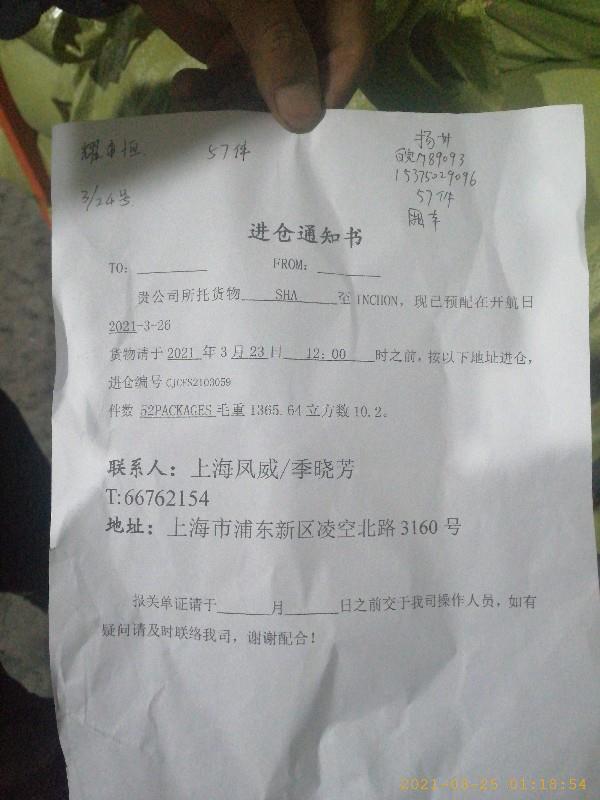 57件
皖M89093
15375029096
57件
厢车
3/24号
进仓通知书
TO: FROM:
贵公司所托货物 SHA 至 INCHON，现已预配在开航日
2021-3-26
货物请于 2021 年 3 月 23 日 12: 00 时之前，按以下地址进仓，
进仓编号 CJCFS2103059
件数 52PACKAGES 毛重 1365.64 立方数 10.2。
联系人：上海凤威/季晓芳
T:66762154
地址：上海市浦东新区凌空北路 3160 号
报关单证请于 月 日之前交于我司操作人员，如有
疑问请及时联络我司，谢谢配合！
2021-03-25 01:18:54